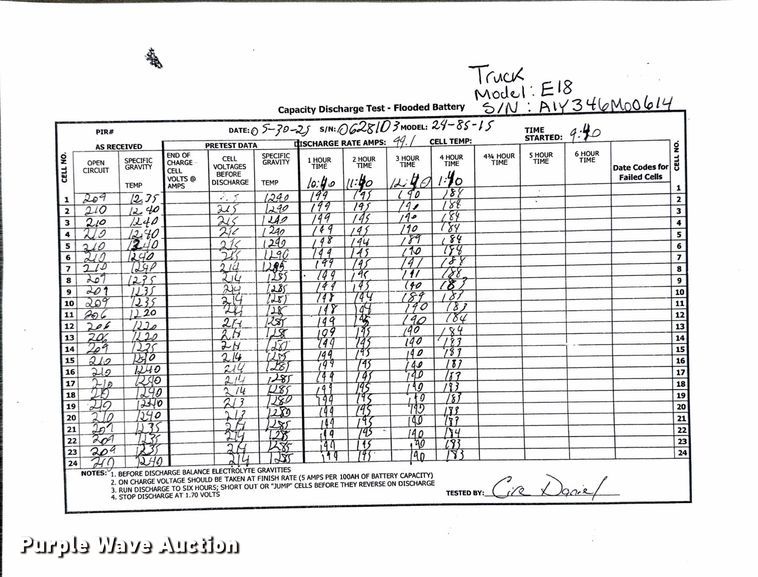 Truck
Model: E18
S/N: A1Y346M00614
Capacity Discharge Test - Flooded Battery
PIR# DATE: 05-30-25 S/N: 0628103 MODEL: 24-85-15 TIME STARTED: 9:40
AS RECEIVED PRETEST DATA DISCHARGE RATE AMPS: CELL TEMP:
CELL NO. OPEN CIRCUIT SPECIFIC GRAVITY TEMP END OF CHARGE CELL VOLTS @ AMPS CELL VOLTAGES BEFORE DISCHARGE SPECIFIC GRAVITY TEMP 1 HOUR TIME 2 HOUR TIME 3 HOUR TIME 4 HOUR TIME 4¾ HOUR TIME 5 HOUR TIME 6 HOUR TIME Date Codes for Failed Cells CELL NO.
10:40 11:40 12:40 1:40
1 209 1235 1290 199 195 190 184 1
2 210 1240 215 1290 199 195 190 184 2
3 210 1240 215 1290 199 195 190 184 3
4 210 1240 1290 199 195 190 184 4
5 210 1240 1290 198 194 189 184 5
6 210 1240 215 1290 199 195 190 184 6
7 210 1240 214 1285 199 195 191 184 7
8 209 1235 214 1285 199 195 191 184 8
9 209 1235 214 1285 199 195 190 183 9
10 209 1235 214 198 194 189 183 10
11 206 1220 214 198 194 190 183 11
12 206 1220 214 1285 199 195 190 184 12
13 206 1220 214 1285 195 190 184 13
14 209 1235 214 1285 199 195 190 183 14
15 210 1240 214 1285 199 195 190 183 15
16 210 1240 214 1285 199 195 190 183 16
17 210 1240 214 1285 199 195 190 183 17
18 210 1240 214 1285 199 195 190 183 18
19 210 1240 213 1280 199 195 190 183 19
20 210 1240 213 1280 199 195 190 183 20
21 209 1235 214 1285 199 195 190 183 21
22 209 1235 214 1285 199 195 190 184 22
23 209 1235 214 1285 199 195 190 183 23
24 210 1240 214 1285 199 195 190 183 24
NOTES: 1. BEFORE DISCHARGE BALANCE ELECTROLYTE GRAVITIES
2. ON CHARGE VOLTAGE SHOULD BE TAKEN AT FINISH RATE (5 AMPS PER 100AH OF BATTERY CAPACITY)
3. RUN DISCHARGE TO SIX HOURS; SHORT OUT OR "JUMP" CELLS BEFORE THEY REVERSE ON DISCHARGE
4. STOP DISCHARGE AT 1.70 VOLTS
TESTED BY: Daniel
Purple Wave Auction